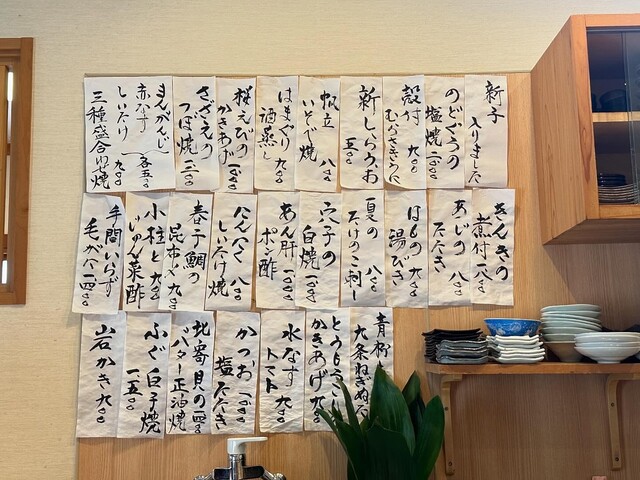 新子
入りました
のどぐろの
塩焼
殻付 九〇〇
むらさきうに
新しらうお
五〇〇
帆立
いそべ焼 八〇〇
はまぐり
酒蒸し 九〇〇
桜えびの
かきあげ 一〇〇〇
さざえの
つぼ焼
まんがんじ
赤なす 各五〇〇
しいたけ 九〇〇
三種盛合わせ焼
きんきの
煮付
あじの 八〇〇
たたき
はもの 九〇〇
湯びき
夏の 八〇〇
たけのこ刺し
穴子の
白焼 一〇〇〇
あん肝 一〇〇〇
ポン酢
にんにく 八〇〇
しいたけ焼
春子鯛の
昆布〆 九〇〇
小柱と 九〇〇
じゅん菜酢
手間いらず
毛がに 一四〇〇
青柳
九条ねぎぬた
とうもろこし
かきあげ 九〇〇
水なす 九〇〇
トマト
かつお 一〇〇〇
塩たたき
北寄貝の 一四〇〇
バター正油焼
ふぐ白子焼
一五〇〇
岩かき 九〇〇